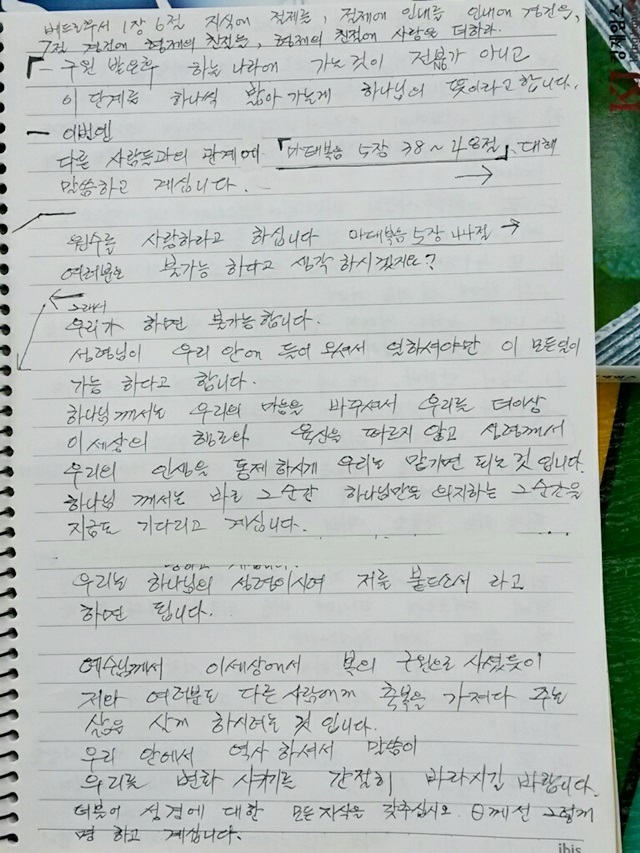 베드로후서 1장 6절 지식에 절제를, 절제에 인내를 인내에 경건을,
7절 경건에 형제의 친절을, 형제의 친절에 사랑을 더하라.
「- 구원 받은후 하늘나라에 가는 것이 전부가 아니고
이 단계를 하나씩 밟아 가는게 하나님의 뜻이라고 합니다.
- 이번엔
다른 사람들과의 관계에 「마태복음 5장 38~48절」 대해
말씀하고 계십니다. →
원수를 사랑하라고 하십니다 마태복음 5장 44절 →
여러분은 불가능 하다고 생각 하시겠지요?
← 그래서
우리가 하면 불가능합니다.
성령님이 우리 안에 들어 오셔서 일하셔야만 이 모든일이
가능 하다고 합니다.
하나님 께서는 우리의 마음을 바꾸셔서 우리를 더이상
이세상의 행로와 육신을 따르지 않고 성령께서
우리의 인생을 통제 하시게 우리는 맡기면 되는 것 입니다.
하나님 께서는 바로 그 순간 하나님만을 의지하는 그 순간을
지금도 기다리고 계십니다.
우리는 하나님의 성령이시여 저를 붙드소서 라고
하면 됩니다.
예수님께서 이세상에서 복의 근원으로 사셨듯이
저와 여러분도 다른 사람에게 축복을 가져다 주는
삶을 살게 하시려는 것 입니다.
우리 안에서 역사 하셔서 말씀이
우리를 변화 시키기를 간절히 바라시길 바랍니다.
더불어 성경에 대한 모든 지식을 갖추십시오 께선 그렇게
명 하고 계십니다.
ibis